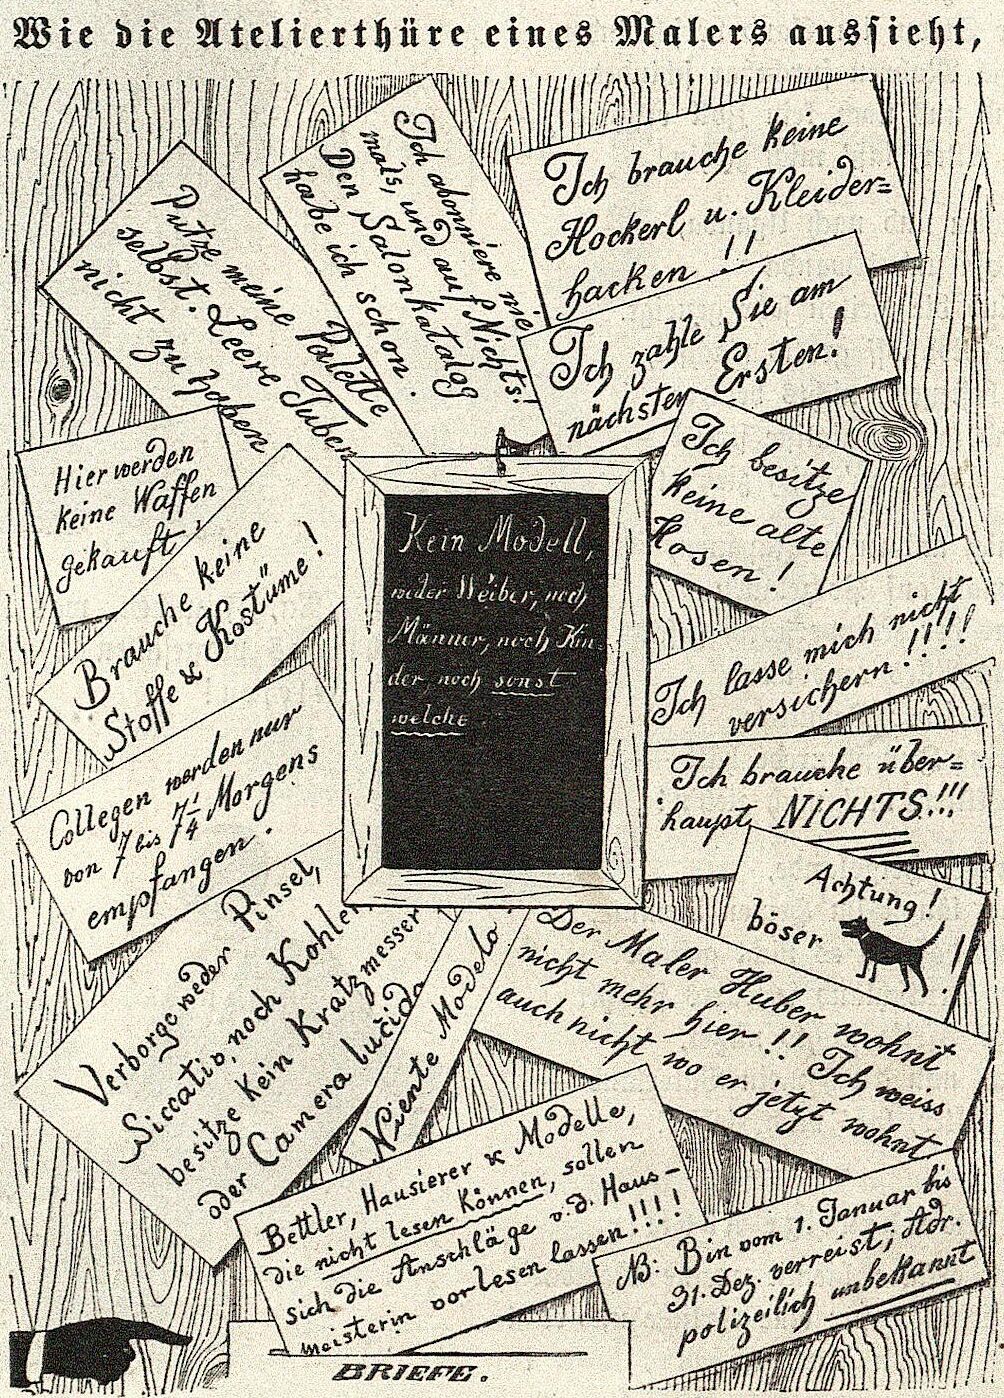 Wie die Atelierthüre eines Malers aussieht,
Putze meine Palette
selbst. Leere Tuben
nicht zu haben
Ich abonniere nie
mals, und auf Nichts!
Den Salonkatalog
habe ich schon.
Ich brauche keine
Hockerl u. Kleider=
hacken !!
Ich zahle Sie am
nächsten Ersten!
Hier werden
keine Waffen
gekauft!
Ich besitze
keine alte
Hosen!
Brauche keine
Stoffe & Kostüme!
Kein Modell,
weder Weiber, noch
Männer, noch Kin=
der, noch sonst
welche.
Ich lasse mich nicht
versichern!!!!
Collegen werden nur
von 7 bis 7 1/4 Morgens
empfangen.
Ich brauche über=
haupt NICHTS!!!
Achtung!
böser
!
Verborge weder Pinsel,
Siccativ, noch Kohlen,
besitze kein Kratzmesser
oder Camera lucida
Niente Modelo
Der Maler Huber wohnt
nicht mehr hier!! Ich weiss
auch nicht wo er jetzt wohnt.
Bettler, Hausierer & Modelle,
die nicht lesen können, sollen
sich die Anschläge v. d. Haus-
meisterin vorlesen lassen!!!!
NB: Bin vom 1. Januar bis
31. Dez. verreist, Adr.
polizeilich unbekannt
BRIEFE.